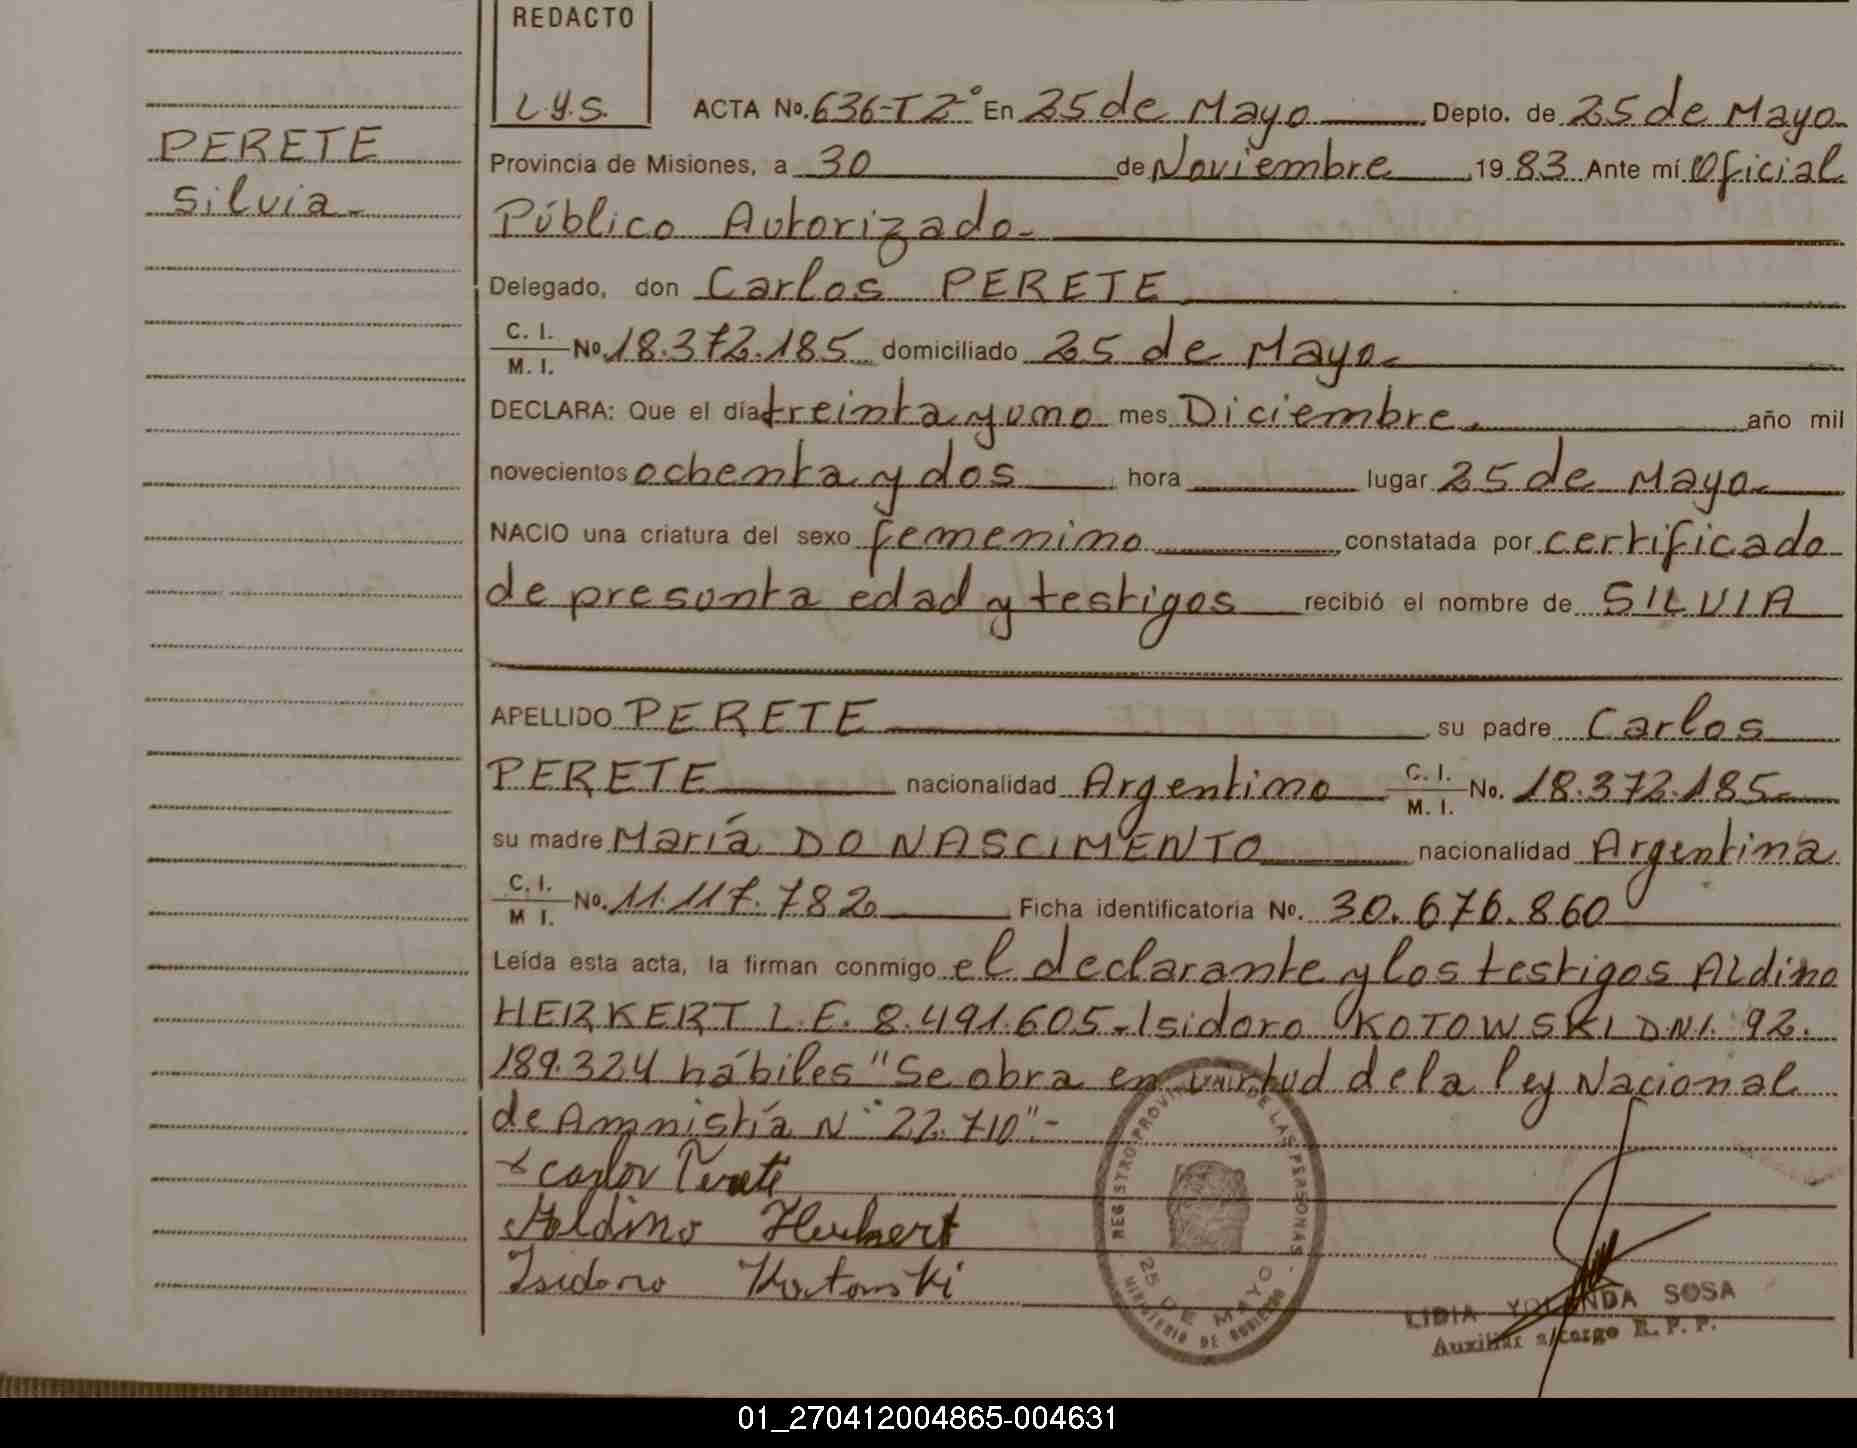 REDACTO
L.Y.S.
PERETE
Silvia.-
ACTA No. 636-T2-° En 25 de Mayo Depto. de 25 de Mayo
Provincia de Misiones, a 30 de Noviembre 1983 Ante mí Oficial
Público Autorizado.-
Delegado, don Carlos PERETE
C. I. / M. I. No. 18.372.185 domiciliado 25 de Mayo.-
DECLARA: Que el día treinta y uno mes Diciembre. año mil
novecientos ochenta y dos hora lugar 25 de Mayo.-
NACIO una criatura del sexo femenino constatada por certificado
de presunta edad y testigos recibió el nombre de SILVIA
APELLIDO PERETE su padre Carlos
PERETE nacionalidad Argentino C. I. / M. I. No. 18.372.185.-
su madre María DO NASCIMENTO nacionalidad Argentina
C. I. / M I. No. 11.117.782 Ficha identificatoria No. 30.676.860
Leída esta acta, la firman conmigo el declarante y los testigos Aldino
HERKERT L.E. 8.491.605.- Isidoro KOTOWSKI D.N.I. 92.
189.324 hábiles "Se obra en virtud de la ley Nacional
de Amnistía N° 22.710".-
Carlos Perete
Aeldino Herkert
Isidoro Kotowski
REGISTRO PROVINCIAL DE LAS PERSONAS
25 DE MAYO
MINISTERIO DE GOBIERNO
LIDIA YOLANDA SOSA
Auxiliar a/cargo R. P. P.
01_270412004865-004631